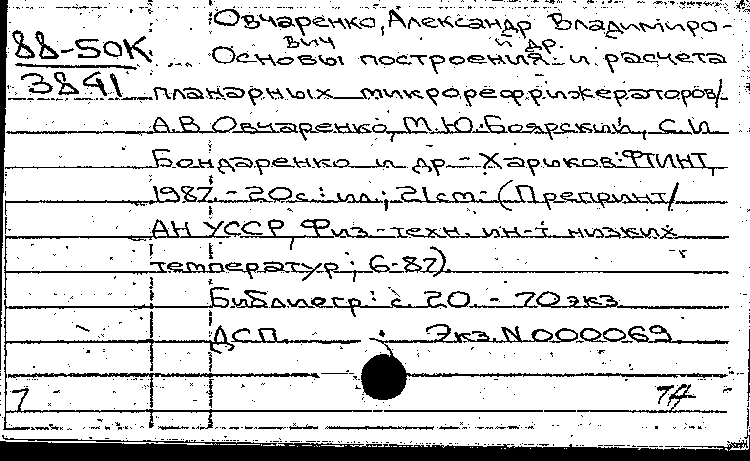 Овчаренко, Александр Владимиро-
вич и др.
88-50К Основы построения и расчета
3841
планарных микрорефрижераторов/
А.В Овчаренко, М.Ю. Боярский, С.И
Бондаренко и др - Харьков: ФТИНТ,
1987. - 20с.: ил.; 21cm - (Препринт/
АН УССР, Физ.-техн. ин-т низких
температур; 6-87).
Библиогр: с. 20. - 70 экз.
ДСП. Экз. N 000069.
7